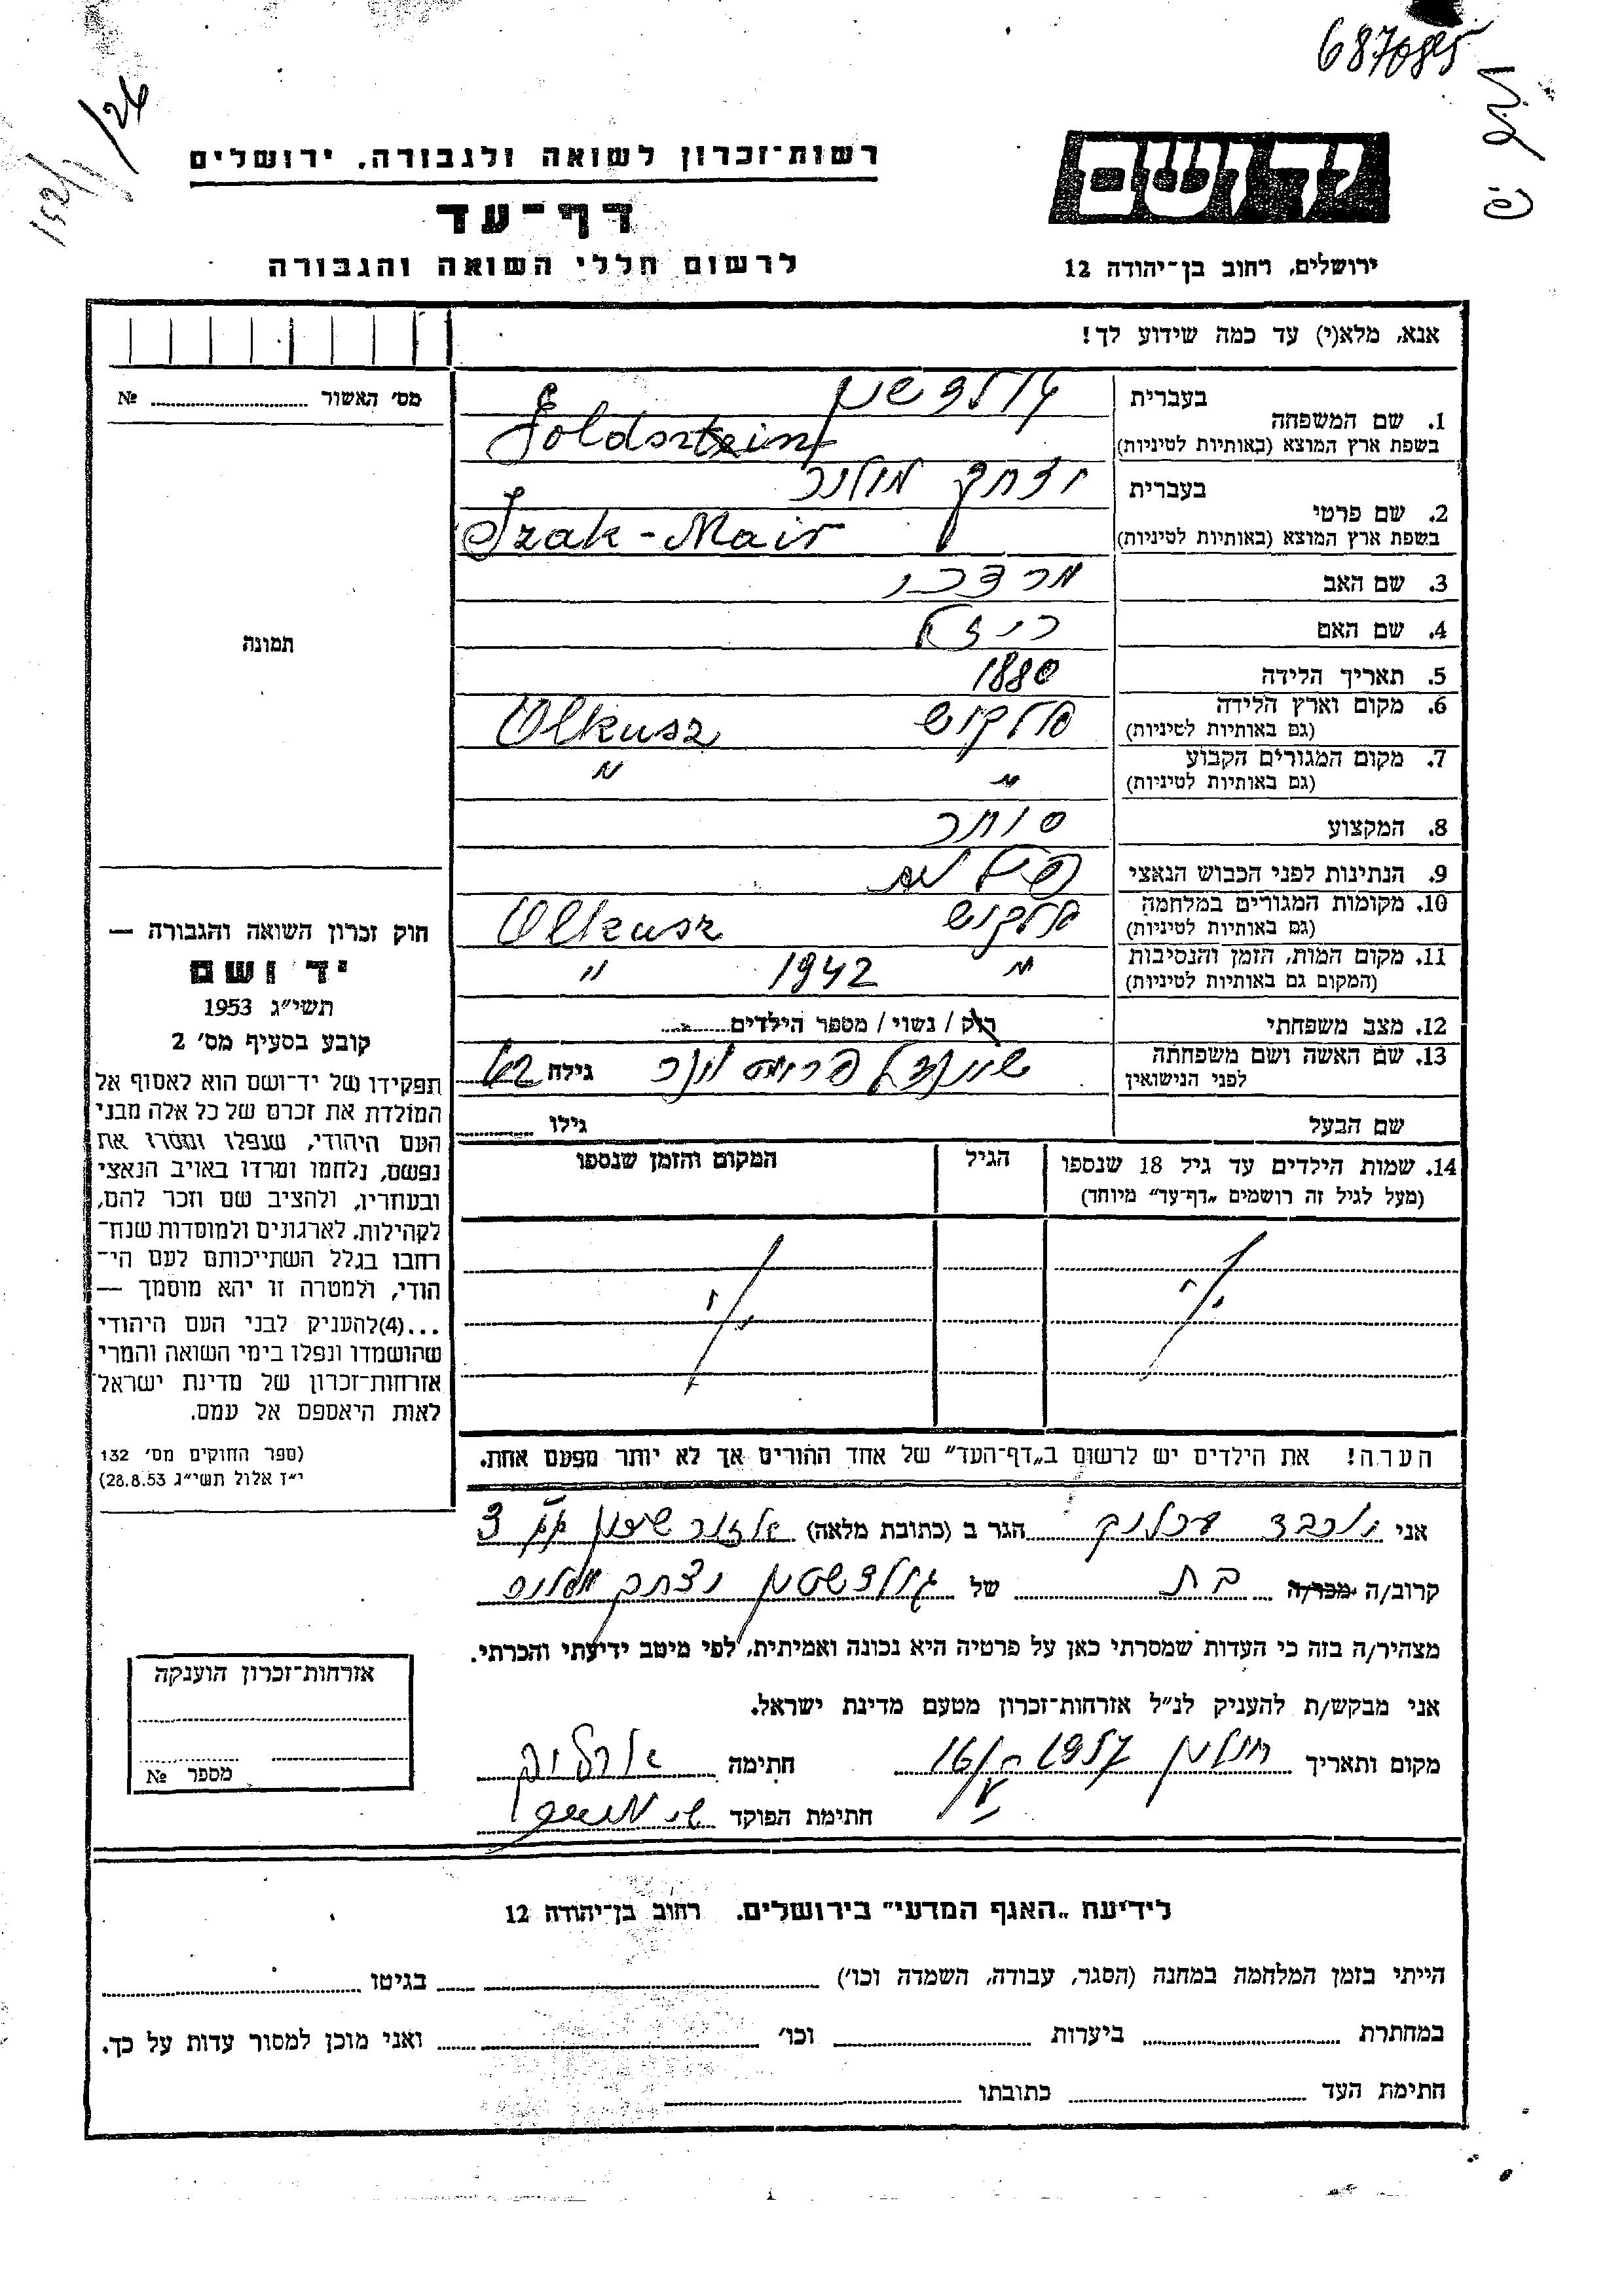 6870885
152/1/24
ידושם
רשות־זכרון לשואה ולגבורה, ירושלים
דף־עד
לרשום חללי השואה והגבורה
ירושלים, רחוב בן־יהודה 12
אנא, מלא(י) עד כמה שידוע לך!
מס׳ האשור № ........
1. שם המשפחה בעברית גולדשטין
בשפת ארץ המוצא (באותיות לטיניות) Goldsztein
2. שם פרטי בעברית יצחק מאיר
בשפת ארץ המוצא (באותיות לטיניות) Izak-Mair
3. שם האב מרדכי
4. שם האם
5. תאריך הלידה 1880
6. מקום וארץ הלידה אלקוש Olkusz
(גם באותיות לטיניות)
7. מקום המגורים הקבוע " "
(גם באותיות לטיניות)
8. המקצוע סוחר
9. הנתינות לפני הכבוש הנאצי
10. מקומות המגורים במלחמה אלקוש Olkusz
(גם באותיות לטיניות)
11. מקום המות, הזמן והנסיבות " 1942 "
(המקום גם באותיות לטיניות)
12. מצב משפחתי רוק / נשוי / מספר הילדים........
13. שם האשה ושם משפחתה גילה 62
לפני הנישואין
שם הבעל גילו ........
14. שמות הילדים עד גיל 18 שנספו הגיל המקום והזמן שנספו
(מעל לגיל זה רושמים „דף־עד״ מיוחד)
הערה! את הילדים יש לרשום ב„דף־העד״ של אחד ההורים אך לא יותר מפעם אחת.
תמונה
חוק זכרון השואה והגבורה —
יד ושם
תשי״ג 1953
קובע בסעיף מס׳ 2
תפקידו של יד־ושם הוא לאסוף אל
המולדת את זכרם של כל אלה מבני
העם היהודי, שנפלו ומסרו את
נפשם, נלחמו ומרדו באויב הנאצי
ובעוזריו, ולהציב שם וזכר להם,
לקהילות, לארגונים ולמוסדות שנח־
רחבו בגלל השתייכותם לעם הי־
הודי, ולמטרה זו יהא מוסמך —
...(4)להעניק לבני העם היהודי
שהושמדו ונפלו בימי השואה והמרי
אזרחות־זכרון של מדינת ישראל
לאות היאספם אל עמם.
(ספר החוקים מס׳ 132
י״ז אלול תשי״ג 28.8.53)
אני יוכבד הגר ב (כתובת מלאה)
קרוב/ה מכר/ה בת של גולדשטין יצחק מאיר
מצהיר/ה בזה כי העדות שמסרתי כאן על פרטיה היא נכונה ואמיתית, לפי מיטב ידיעתי והכרתי.
אני מבקש/ת להעניק לנ״ל אזרחות־זכרון מטעם מדינת ישראל.
מקום ותאריך חולון 1957 חתימה
חתימת הפוקד
אזרחות־זכרון הוענקה
מספר №
לידיעת „האגף המדעי״ בירושלים, רחוב בן־יהודה 12
הייתי בזמן המלחמה במחנה (הסגר, עבודה, השמדה וכו׳) ........ בגיטו ........
במחתרת ........ ביערות ........ וכו׳ ........ ואני מוכן למסור עדות על כך.
חתימת העד ........ כתובתו ........